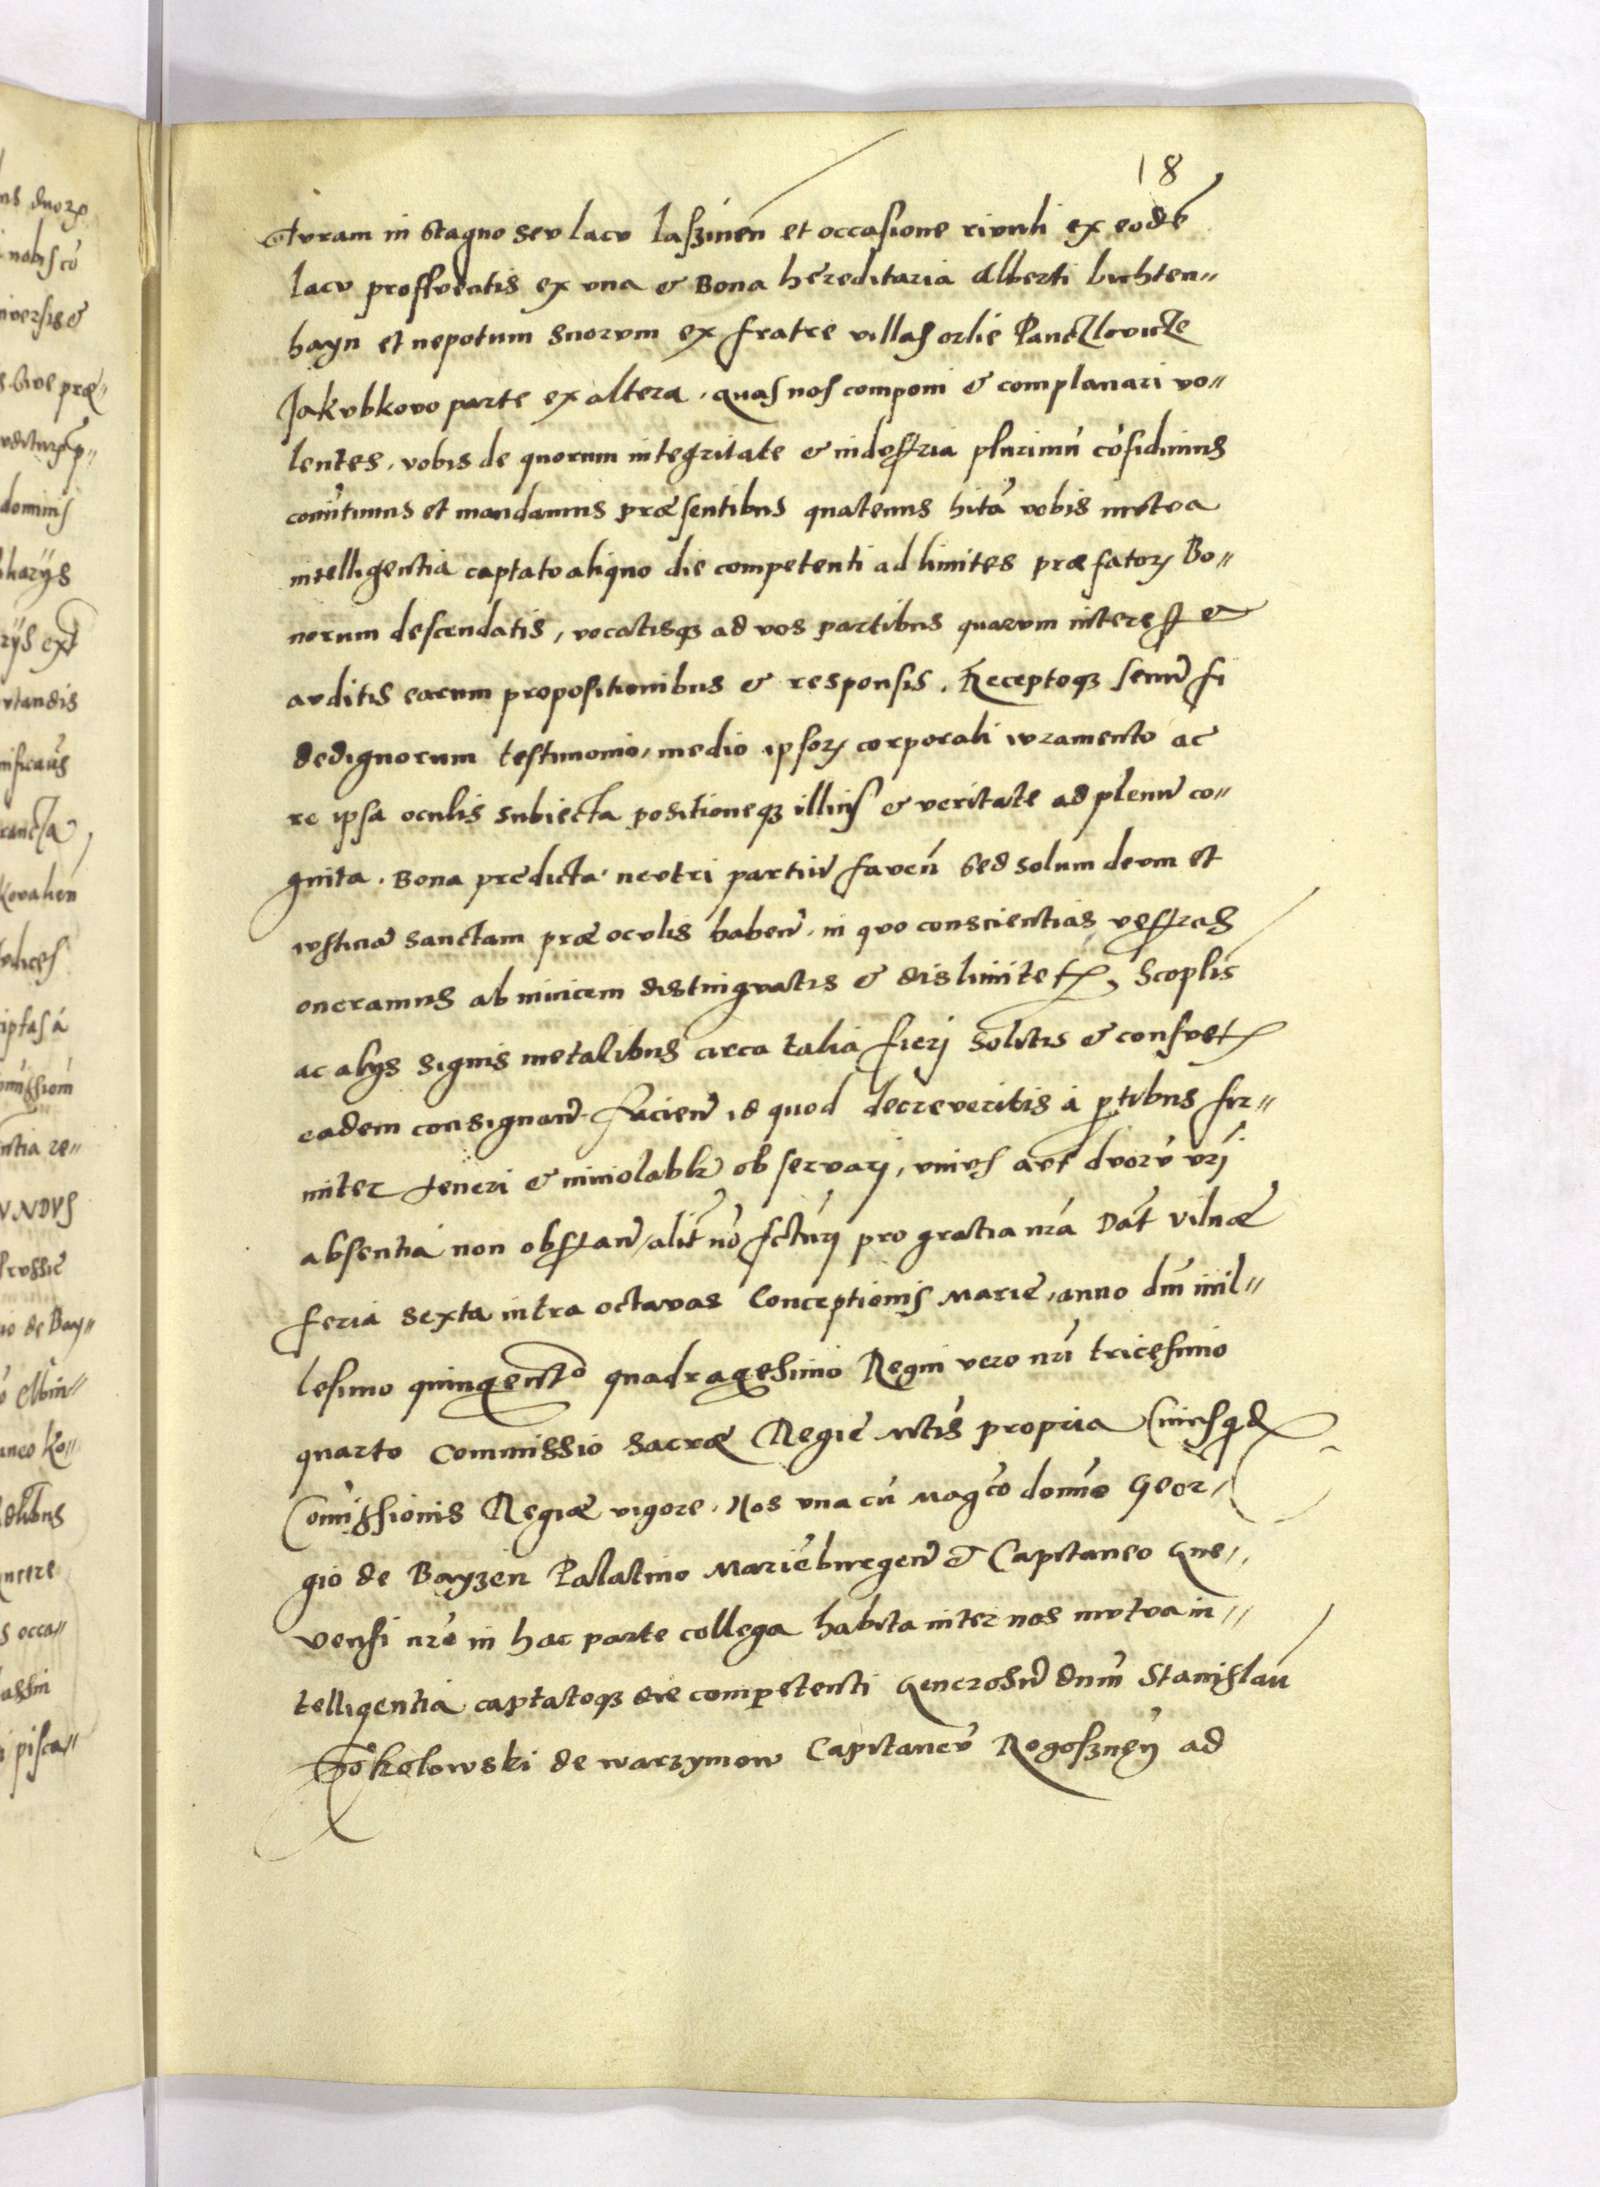 18
turam in stagno seu lacu laszinen̄ et occasione rivuli ex eodē
lacu proffluentis ex una & Bona hereditaria Alberti luchten=
hayn et nepotum suorum ex fratre villas orlie Panczlovicze
Jakubkovo parte ex altera, quas nos componi & complanari vo=
lentes, vobis de quorum integritate & industria plurimū cōfidimus
comittimus et mandamus præsentibus quatenus hita vobis mutua
intelligentia captato aliquo die competenti ad limites præfatorꝝ Bo=
norum descendatis, vocatisqꝫ ad vos partibus quarum interest &
auditis earum propositionibus & responsis. Receptoqꝫ seniū fi
dedignorum testimonio, medio ipsorꝝ corporali iuramento ac
re ipsa oculis subiecta positioneqꝫ illius & veritate ad plenū co=
gnita. Bona predicta neutri partiū faven̄ sed solum deum et
iusticiā sanctam præ oculis haben̄, in quo conscientias vestras
oneramus ab invicem distinguatis & dislimitetꝭ, Scoplis
ac alijs signis metalibus circa talia fieri solitis & consuetꝭ
eadem consignan̄. Facien̄ id quod decreveritis á ꝑtibus fir=
miter teneri & inviolablr observari, unius aut duorū vrī
absentia non obstan̄, alit̄ nō fcturi pro gratia nrā Dat̄ vilnæ
feria sexta intra octavas Conceptionis Marie, anno dnī mil=
lesimo quingento quadragesimo Regni vero nrī tricesimo
quarto Commissio sacræ Regie Mtis propria Cuiusqd
Comissionis Regiæ vigore, Nos una cū Magco domīo Geor=
gio de Bayzen Palatino Marieburgen̄ & Capitaneo Gne=
vensi nrō in hac parte collega habita inter nos mutua in=
telligentia captatoqꝫ die competenti generosū dnm̄ Stanislaū
Sokolowski de warzymow Capitaneū Rogosznen̄ ad